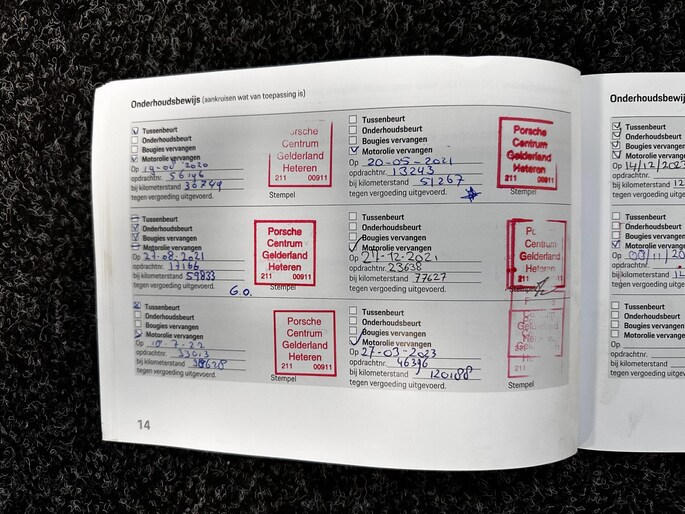 Onderhoudsbewijs (aankruisen wat van toepassing is)
Tussenbeurt
Onderhoudsbeurt
Bougies vervangen
Motorolie vervangen
Op 2020
opdrachtnr. 56146
bij kilometerstand 30749
tegen vergoeding uitgevoerd.
Porsche
Centrum
Gelderland
Heteren
211 00911
Stempel
Tussenbeurt
Onderhoudsbeurt
Bougies vervangen
Motorolie vervangen
Op 20-05-2021
opdrachtnr. 13243
bij kilometerstand 51267
tegen vergoeding uitgevoerd.
Porsche
Centrum
Gelderland
Heteren
211 00911
Stempel
Tussenbeurt
Onderhoudsbeurt
Bougies vervangen
Motorolie vervangen
Op 27-08-2021
opdrachtnr. 17166
bij kilometerstand 59833
tegen vergoeding uitgevoerd.
G.O.
Porsche
Centrum
Gelderland
Heteren
211 00911
Stempel
Tussenbeurt
Onderhoudsbeurt
Bougies vervangen
Motorolie vervangen
Op 21-12-2021
opdrachtnr. 23638
bij kilometerstand 77627
tegen vergoeding uitgevoerd.
Centrum
Gelderland
Heteren
211
Stempel
Tussenbeurt
Onderhoudsbeurt
Bougies vervangen
Motorolie vervangen
Op
opdrachtnr. 33013
bij kilometerstand
tegen vergoeding uitgevoerd.
Porsche
Centrum
Gelderland
Heteren
211 00911
Stempel
Tussenbeurt
Onderhoudsbeurt
Bougies vervangen
Motorolie vervangen
Op 27-03-2023
opdrachtnr. 46396
bij kilometerstand 120188
tegen vergoeding uitgevoerd.
211
Stempel
14
Tussenbeurt
Onderhoudsbeurt
Bougies vervangen
Motorolie vervangen
opdrachtnr.
bij kilometerstand
tegen vergoeding uitgevoerd.
Tussenbeurt
Onderhoudsbeurt
Bougies vervangen
Motorolie vervangen
opdrachtnr.
bij kilometerstand
tegen vergoeding uitgevoerd.
Tussenbeurt
Onderhoudsbeurt
Bougies vervangen
Motorolie vervangen
Op
opdrachtnr.
bij kilometerstand
tegen vergoeding